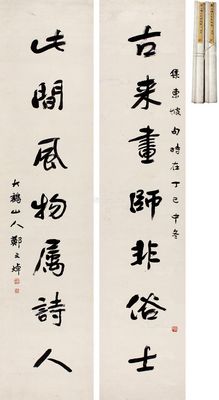 古来畫師非俗士
集東坡句時在丁巳中冬
此間風物属詩人
大鶴山人鄭文焯